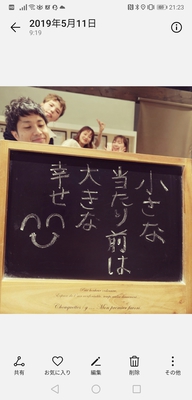 21:23
2019年5月11日
9:19
小さな
当たり前は
大きな
幸せ
共有
お気に入り
編集
削除
その他